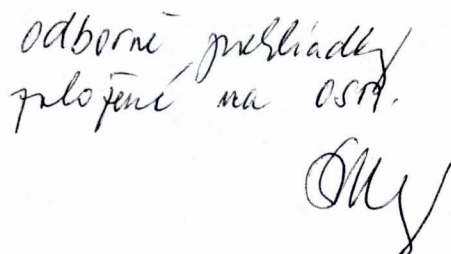 odborné prehliadky
založené na OSM.